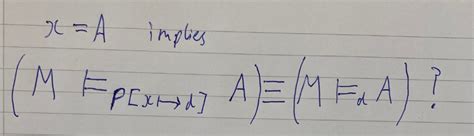 x = A implies
(M ⊨_{ρ[x↦d]} A) ≡ (M ⊨_d A) ?